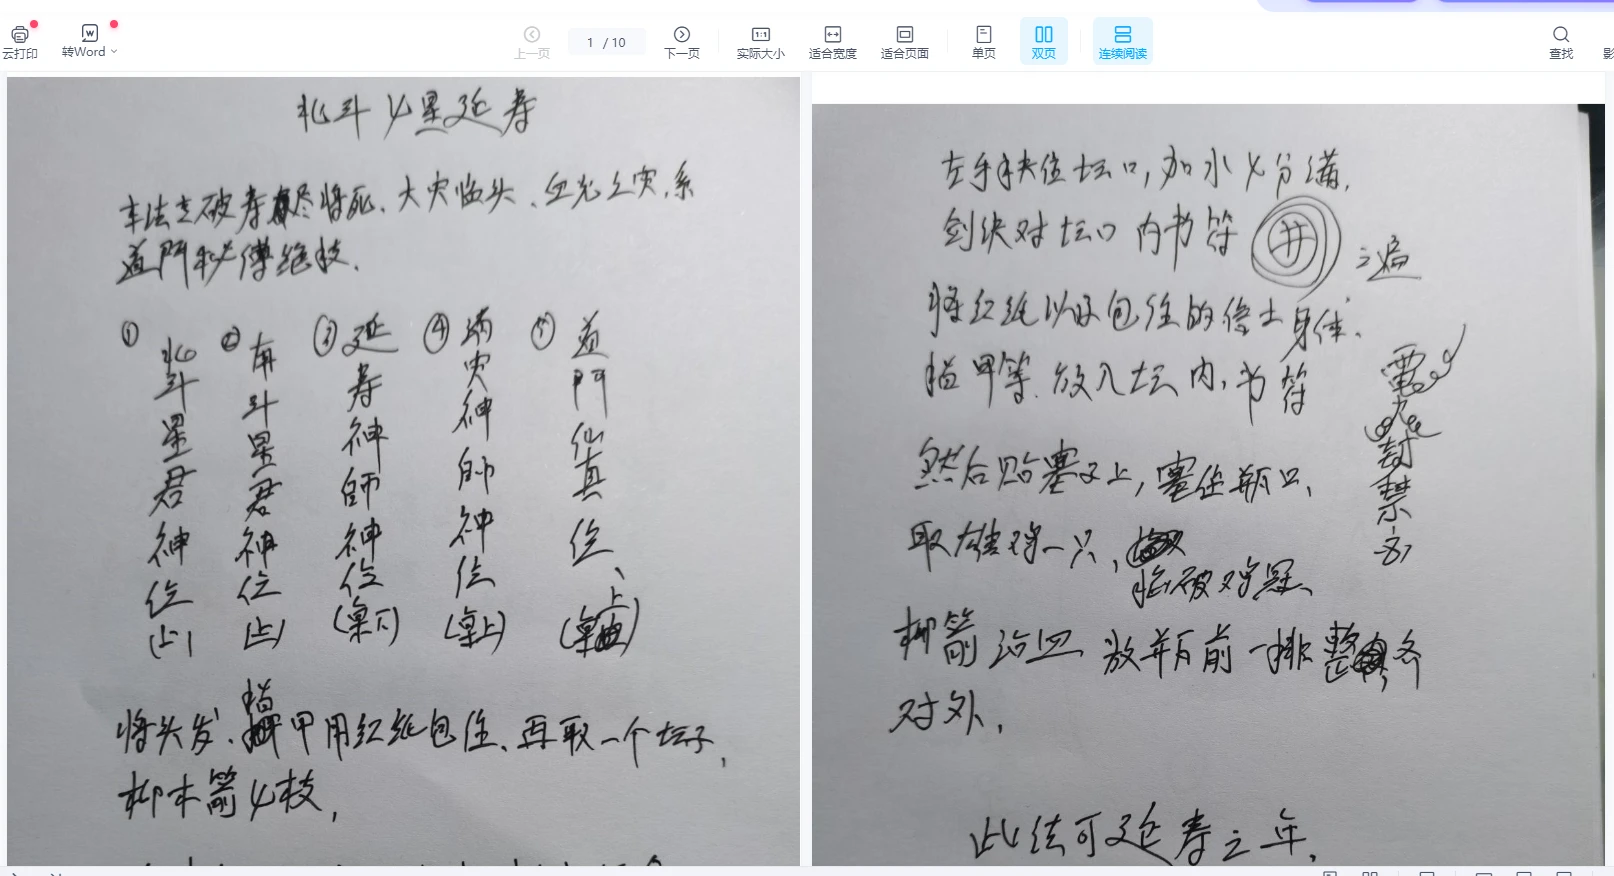 云打印
转Word
上一页
1 / 10
下一页
实际大小
适合宽度
适合页面
单页
双页
连续阅读
查找
北斗七星延寿
本法专破寿尽将死、大灾临头、血光之灾,系
道門秘傳绝技.
① 北斗星君神位(上)
② 南斗星君神位(上)
③ 延寿神師神位(桌下)
④ 消灾神師神位(桌上)
⑤ 道門仙真位、(桌上)
将头发、指甲用红纸包住、再取一个坛子,
柳木箭七枝,
左手托住坛口,加水七分满,
剑诀对坛口内书符
井
三遍
将红纸以及包住的信士身体、
指甲等.放入坛内,书符
然后贴塞子上,塞住瓶口,
取雄鸡一只,
掐破鸡冠、
柳箭沾血 放瓶前一排整
对外,
此法可延寿三年,